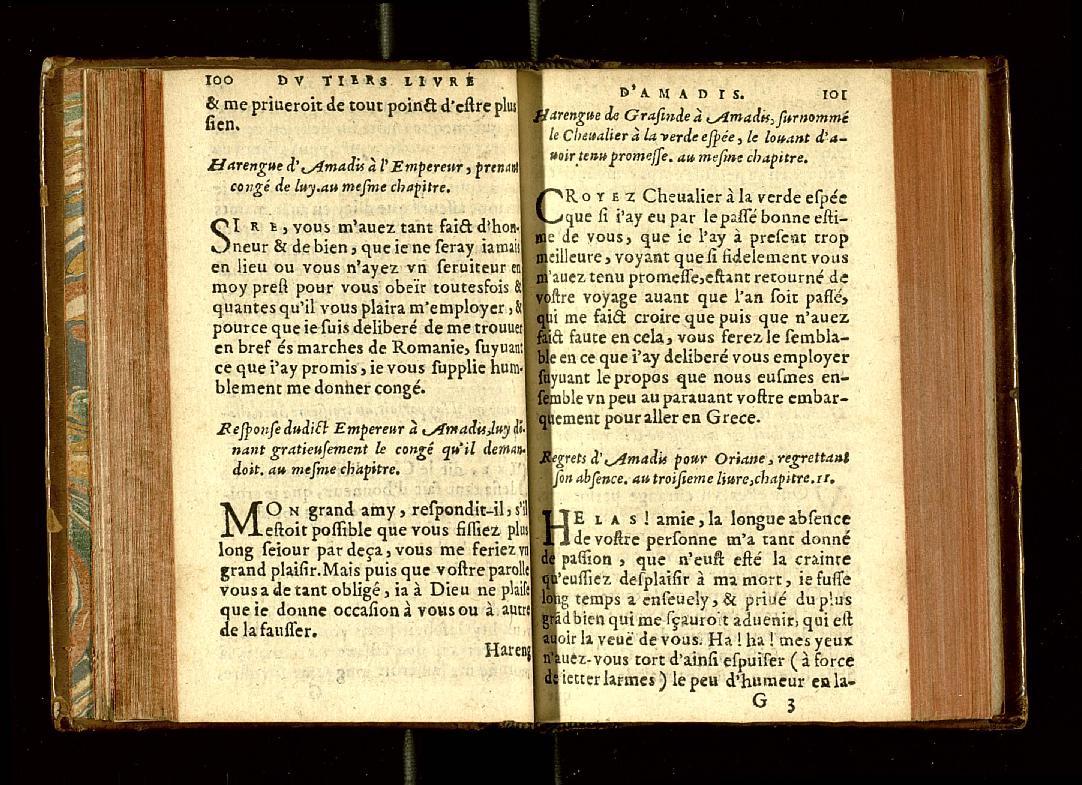 100 DV TIERS LIVRE
& me priueroit de tout poinct d'estre plus
sien.
Harengue d'Amadis à l'Empereur, prenant
congé de luy. au mesme chapitre.
SIRE, vous m'auez tant faict d'hon-
neur & de bien, que ie ne seray iamais
en lieu ou vous n'ayez vn seruiteur en
moy prest pour vous obeïr toutesfois &
quantes qu'il vous plaira m'employer, &
pource que ie suis deliberé de me trouuer
en bref és marches de Romanie, suyuant
ce que i'ay promis, ie vous supplie hum-
blement me donner congé.
Response dudict Empereur à Amadis, luy dō-
nant gratieusement le congé qu'il deman-
doit. au mesme chapitre.
MON grand amy, respondit-il, s'il
estoit possible que vous fissiez plus
long seiour par deça, vous me feriez vn
grand plaisir. Mais puis que vostre parolle
vous a de tant obligé, ia à Dieu ne plaise
que ie donne occasion à vous ou à autre
de la fausser.
Hareng
D'AMADIS. 101
Harengue de Grasinde à Amadis, surnommé
le Cheualier à la verde espée, le louant d'a-
uoir tenu promesse. au mesme chapitre.
CROYEZ Cheualier à la verde espée
que si i'ay eu par le passé bonne esti-
me de vous, que ie l'ay à present trop
meilleure, voyant que si fidelement vous
m'auez tenu promesse, estant retourné de
vostre voyage auant que l'an soit passé,
qui me faict croire que puis que n'auez
faict faute en cela, vous ferez le sembla-
ble en ce que i'ay deliberé vous employer
suyuant le propos que nous eusmes en-
semble vn peu au parauant vostre embar-
quement pour aller en Grece.
Regrets d'Amadis pour Oriane, regrettant
son absence. au troisieme liure, chapitre. 11.
HELAS! amie, la longue absence
de vostre personne m'a tant donné
de passion, que n'eust esté la crainte
qu'eussiez desplaisir à ma mort, ie fusse
long temps a enseuely, & priué du plus
grād bien qui me sçauroit aduenir, qui est
auoir la veuë de vous. Ha! ha! mes yeux
n'auez-vous tort d'ainsi espuiser (à force
de ietter larmes) le peu d'humeur en la-
G 3